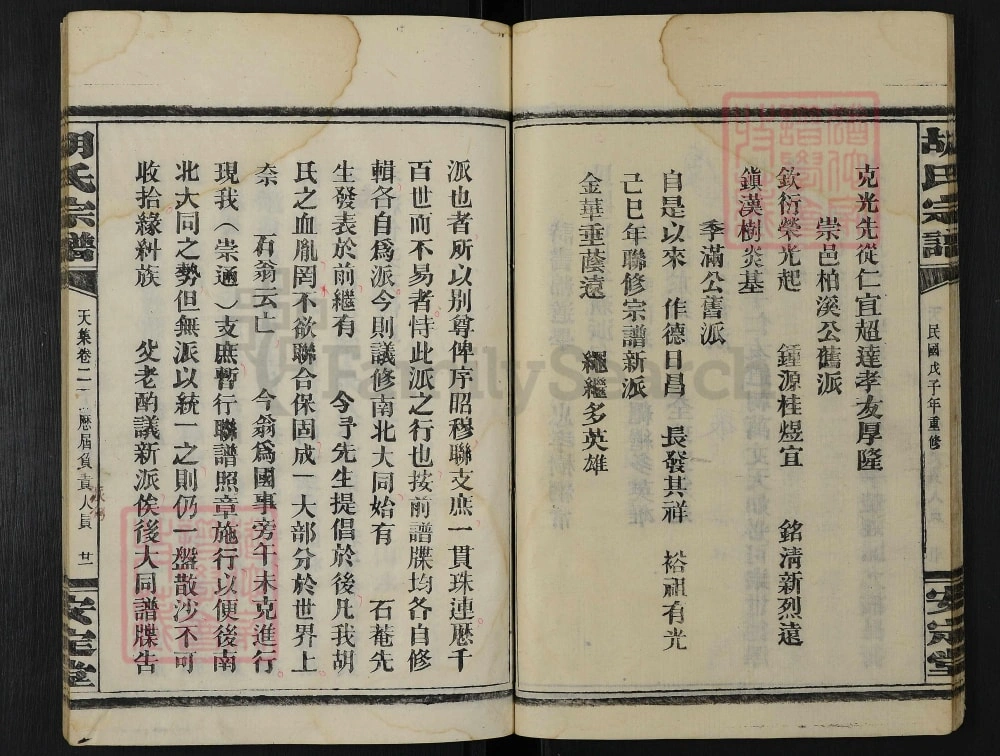 胡氏宗譜
民國戊子年重修
安定堂
克光先從仁宜超達孝友厚隆
崇邑柏溪公舊派
欽衍榮光起 鍾源桂煜宜 銘清新烈遠
鎮漢樹炎基
季滿公舊派
自是以來 作德日昌 長發其祥 裕祖有光
己巳年聯修宗譜新派
金華重蔭遠 繩繼多英雄
派也者所以別尊俾序昭穆聯支庶一貫珠連歷千
百世而不易者恃此派之行也按前譜牒均各自修
輯各自爲派今則議修南北大同始有 石菴先
生發表於前繼有 令予先生提倡於後凡我胡
氏之血胤罔不欲聯合保固成一大部分於世界上
奈 石翁云亡 今翁爲國事旁午未克進行
現我（崇通）支庶暫行聯譜照章施行以便後南
北大同之勢但無派以統一之則仍一盤散沙不可
收拾緣糾族 父老酌議新派俟後大同譜牒告
胡氏宗譜
天集卷二 歷屆負責人員 廿
安定堂
FamilySearch